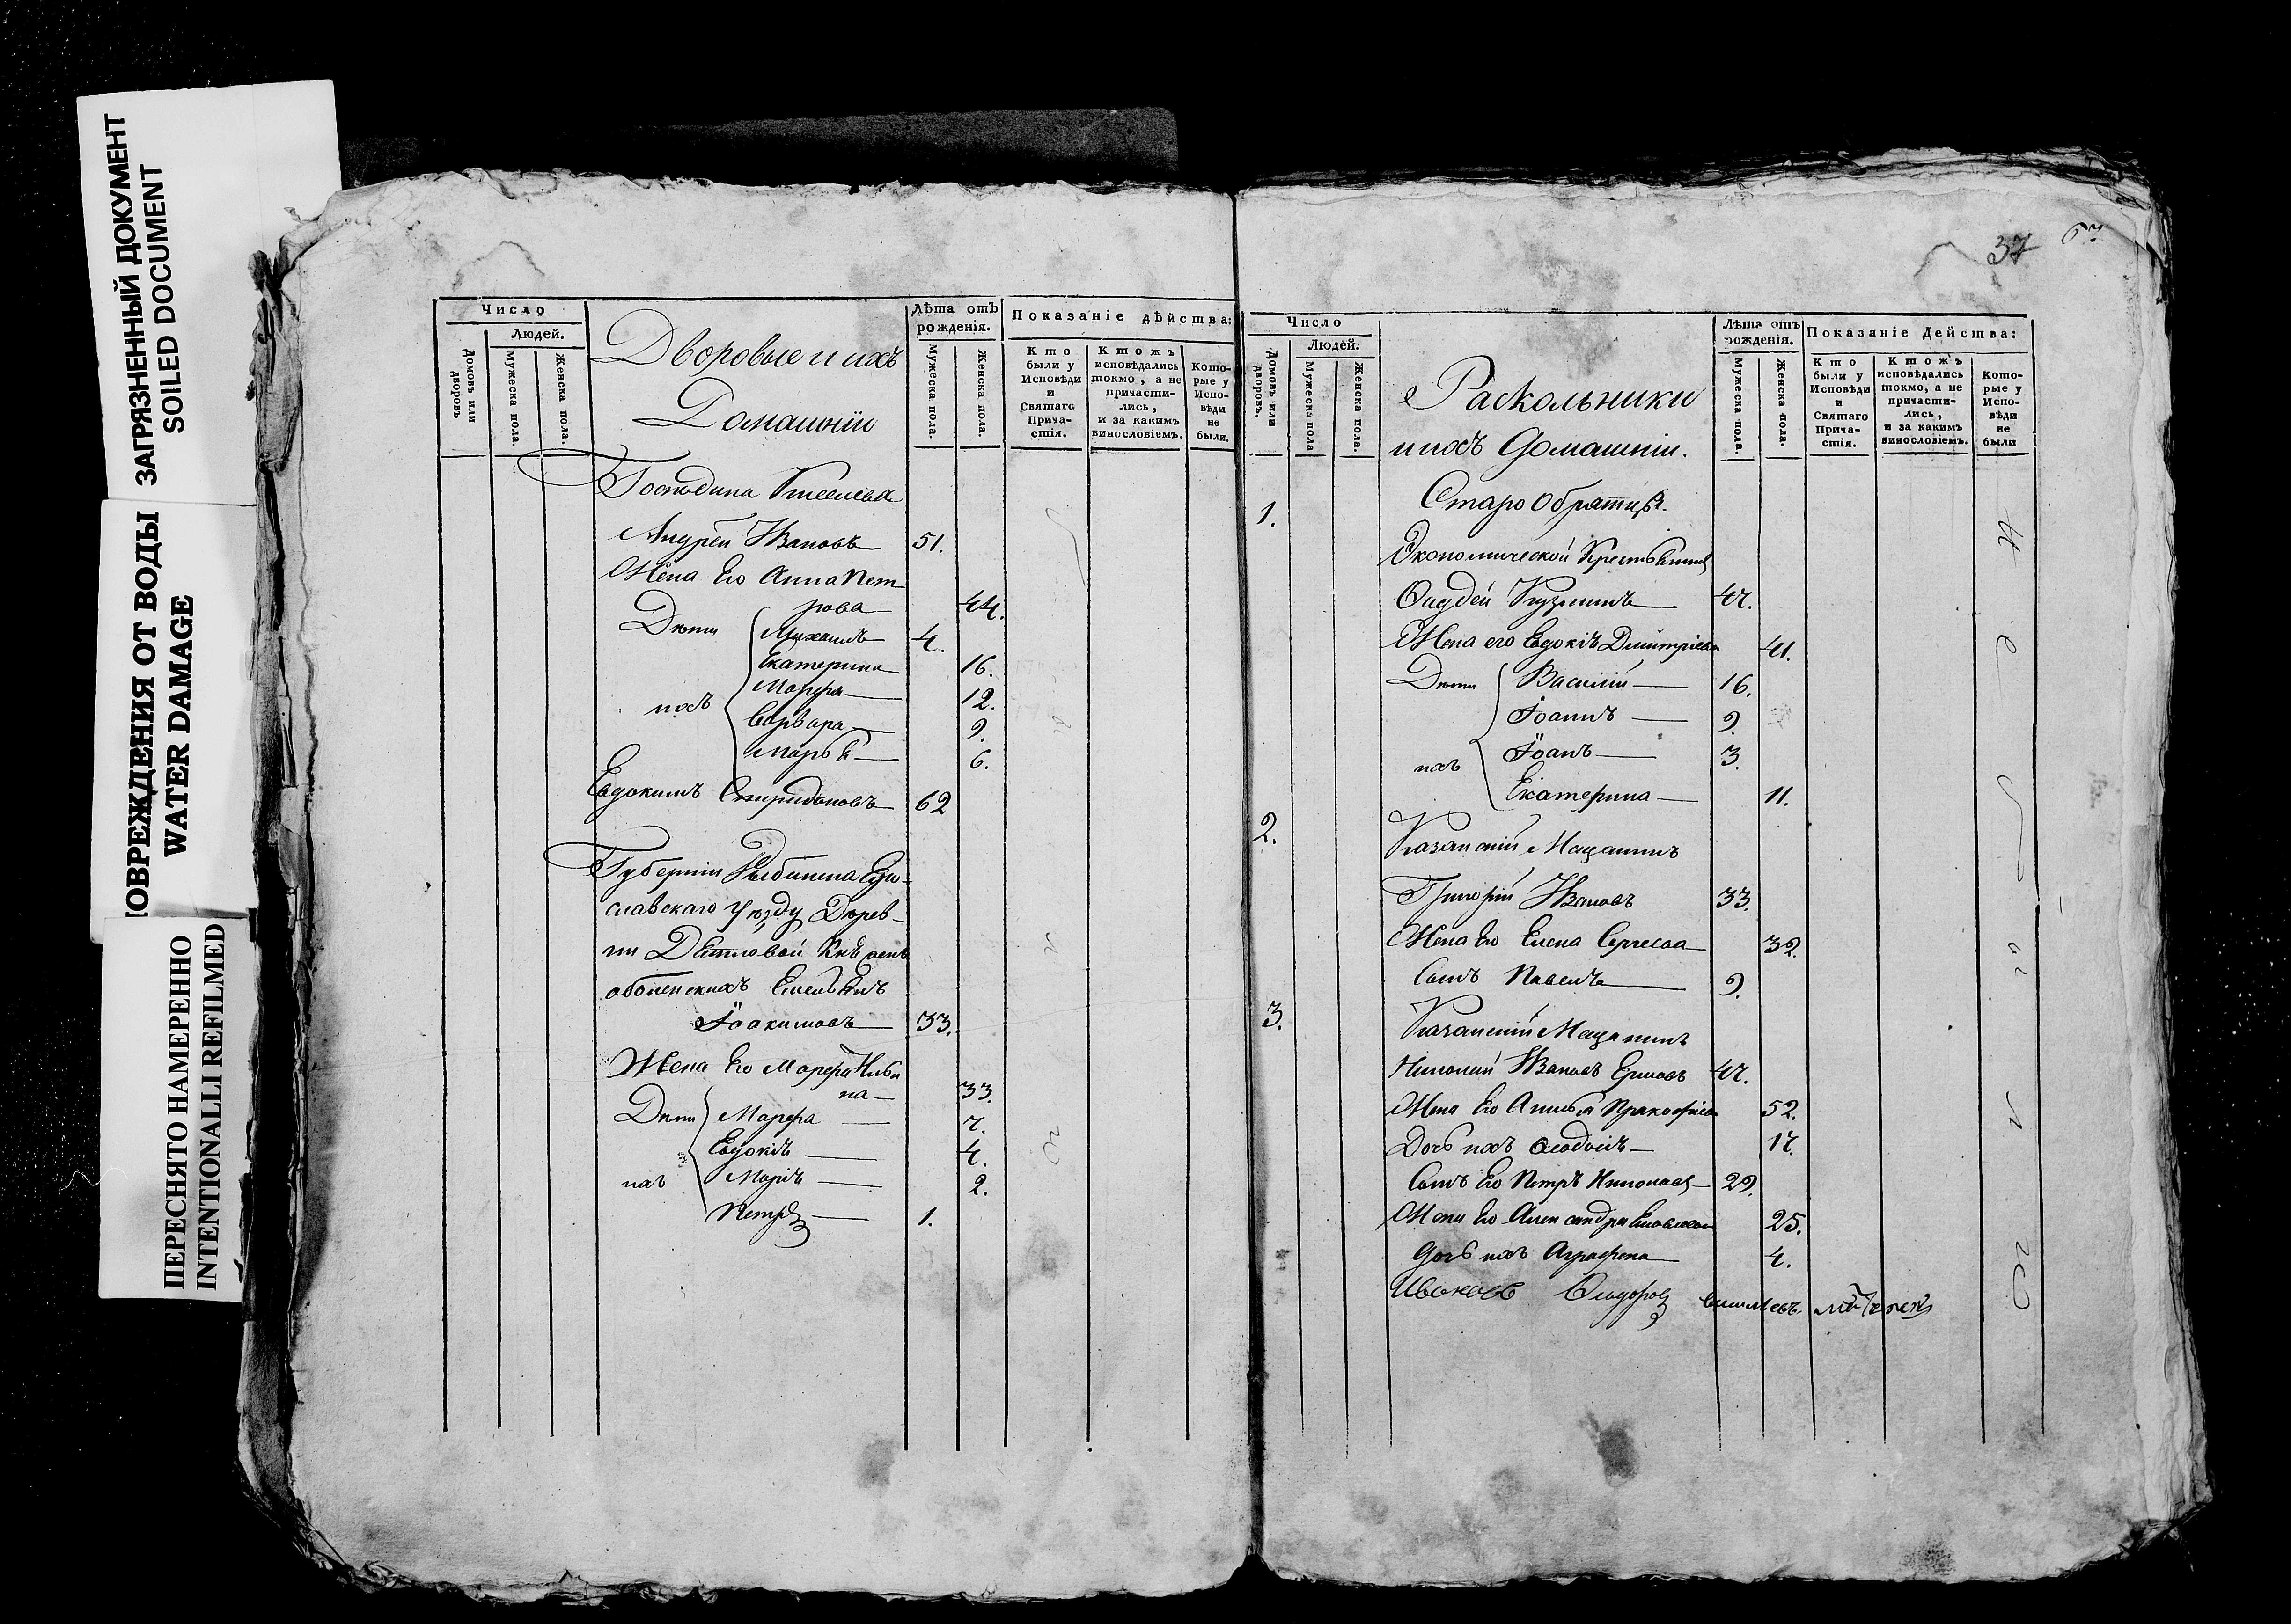 ЗАГРЯЗНЕННЫЙ ДОКУМЕНТ
SOILED DOCUMENT
ПОВРЕЖДЕНИЯ ОТ ВОДЫ
WATER DAMAGE
ПЕРЕСНЯТО НАМЕРЕННО
INTENTIONALLI REFILMED
Число
Людей.
Домовъ или дворовъ
Мужеска пола.
Женска пола.
Дворовые и ихъ
Домашніи
Лѣта отъ рожденія.
Мужеска пола.
Женска пола.
Показаніе дѣйства:
Кто были у Исповѣди и Святаго Прича-стія.
Ктожъ исповѣдались токмо, а не причасти-лись, и за какимъ винословіемъ.
Кото-рые у Испо-вѣди не были.
Господина
Андрей Ивановъ 51.
Жена Его Анна Пет
рова 44.
Дѣти Михаилъ 4.
Екатерина 16.
Марфа 12.
ихъ Варвара 9.
Марья 6.
Евдокимъ Спиридоновъ 62
Губерніи
славскаго уѣзду Дерев-
ни
оболенскихъ Емельянъ
Іоакимовъ 33.
Жена Его Марфа
на 33.
Дѣти Марфа 7.
Евдокія 4.
ихъ Марія 2.
Петръ 1.
37
67
Число
Людей.
Домовъ или дворовъ.
Мужеска пола
Женска пола.
Раскольники
и ихъ Домашніи.
Лѣта отъ рожденія.
Мужеска пола.
Женска пола.
Показаніе Действа:
Кто были у Исповѣди и Святаго Прича-стія.
Ктожъ исповѣдались токмо, а не причасти-лись, и за какимъ винословіемъ.
Кото-рые у Испо-вѣди не были
1. Старообрятцы.
Экономической Крестьянинъ
Фаддей Кузминъ 47.
Жена его Евдокія Дмитріева 41.
Дѣти Василій 16.
Іоаннъ 9.
ихъ Іоанъ 3.
Екатерина 11.
2. Казанскій Мещанинъ
Григорій Ивановъ 33.
Жена Его Елена Сергеева 32.
Сынъ Павелъ 9.
3. Казанскій Мещанинъ
Николай Ивановъ 47.
Жена Его Прокофьева 52.
Дочь ихъ 17.
Сынъ Его Петръ Николаевъ 29.
Жена Его Александра 25.
Дочь ихъ Аграфена 4.
Ивановъ